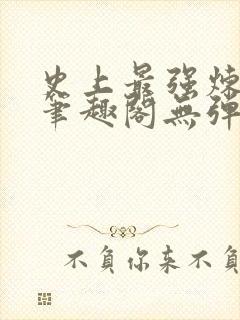 史上最强炼
笔趣阁无弹
不负你来不负